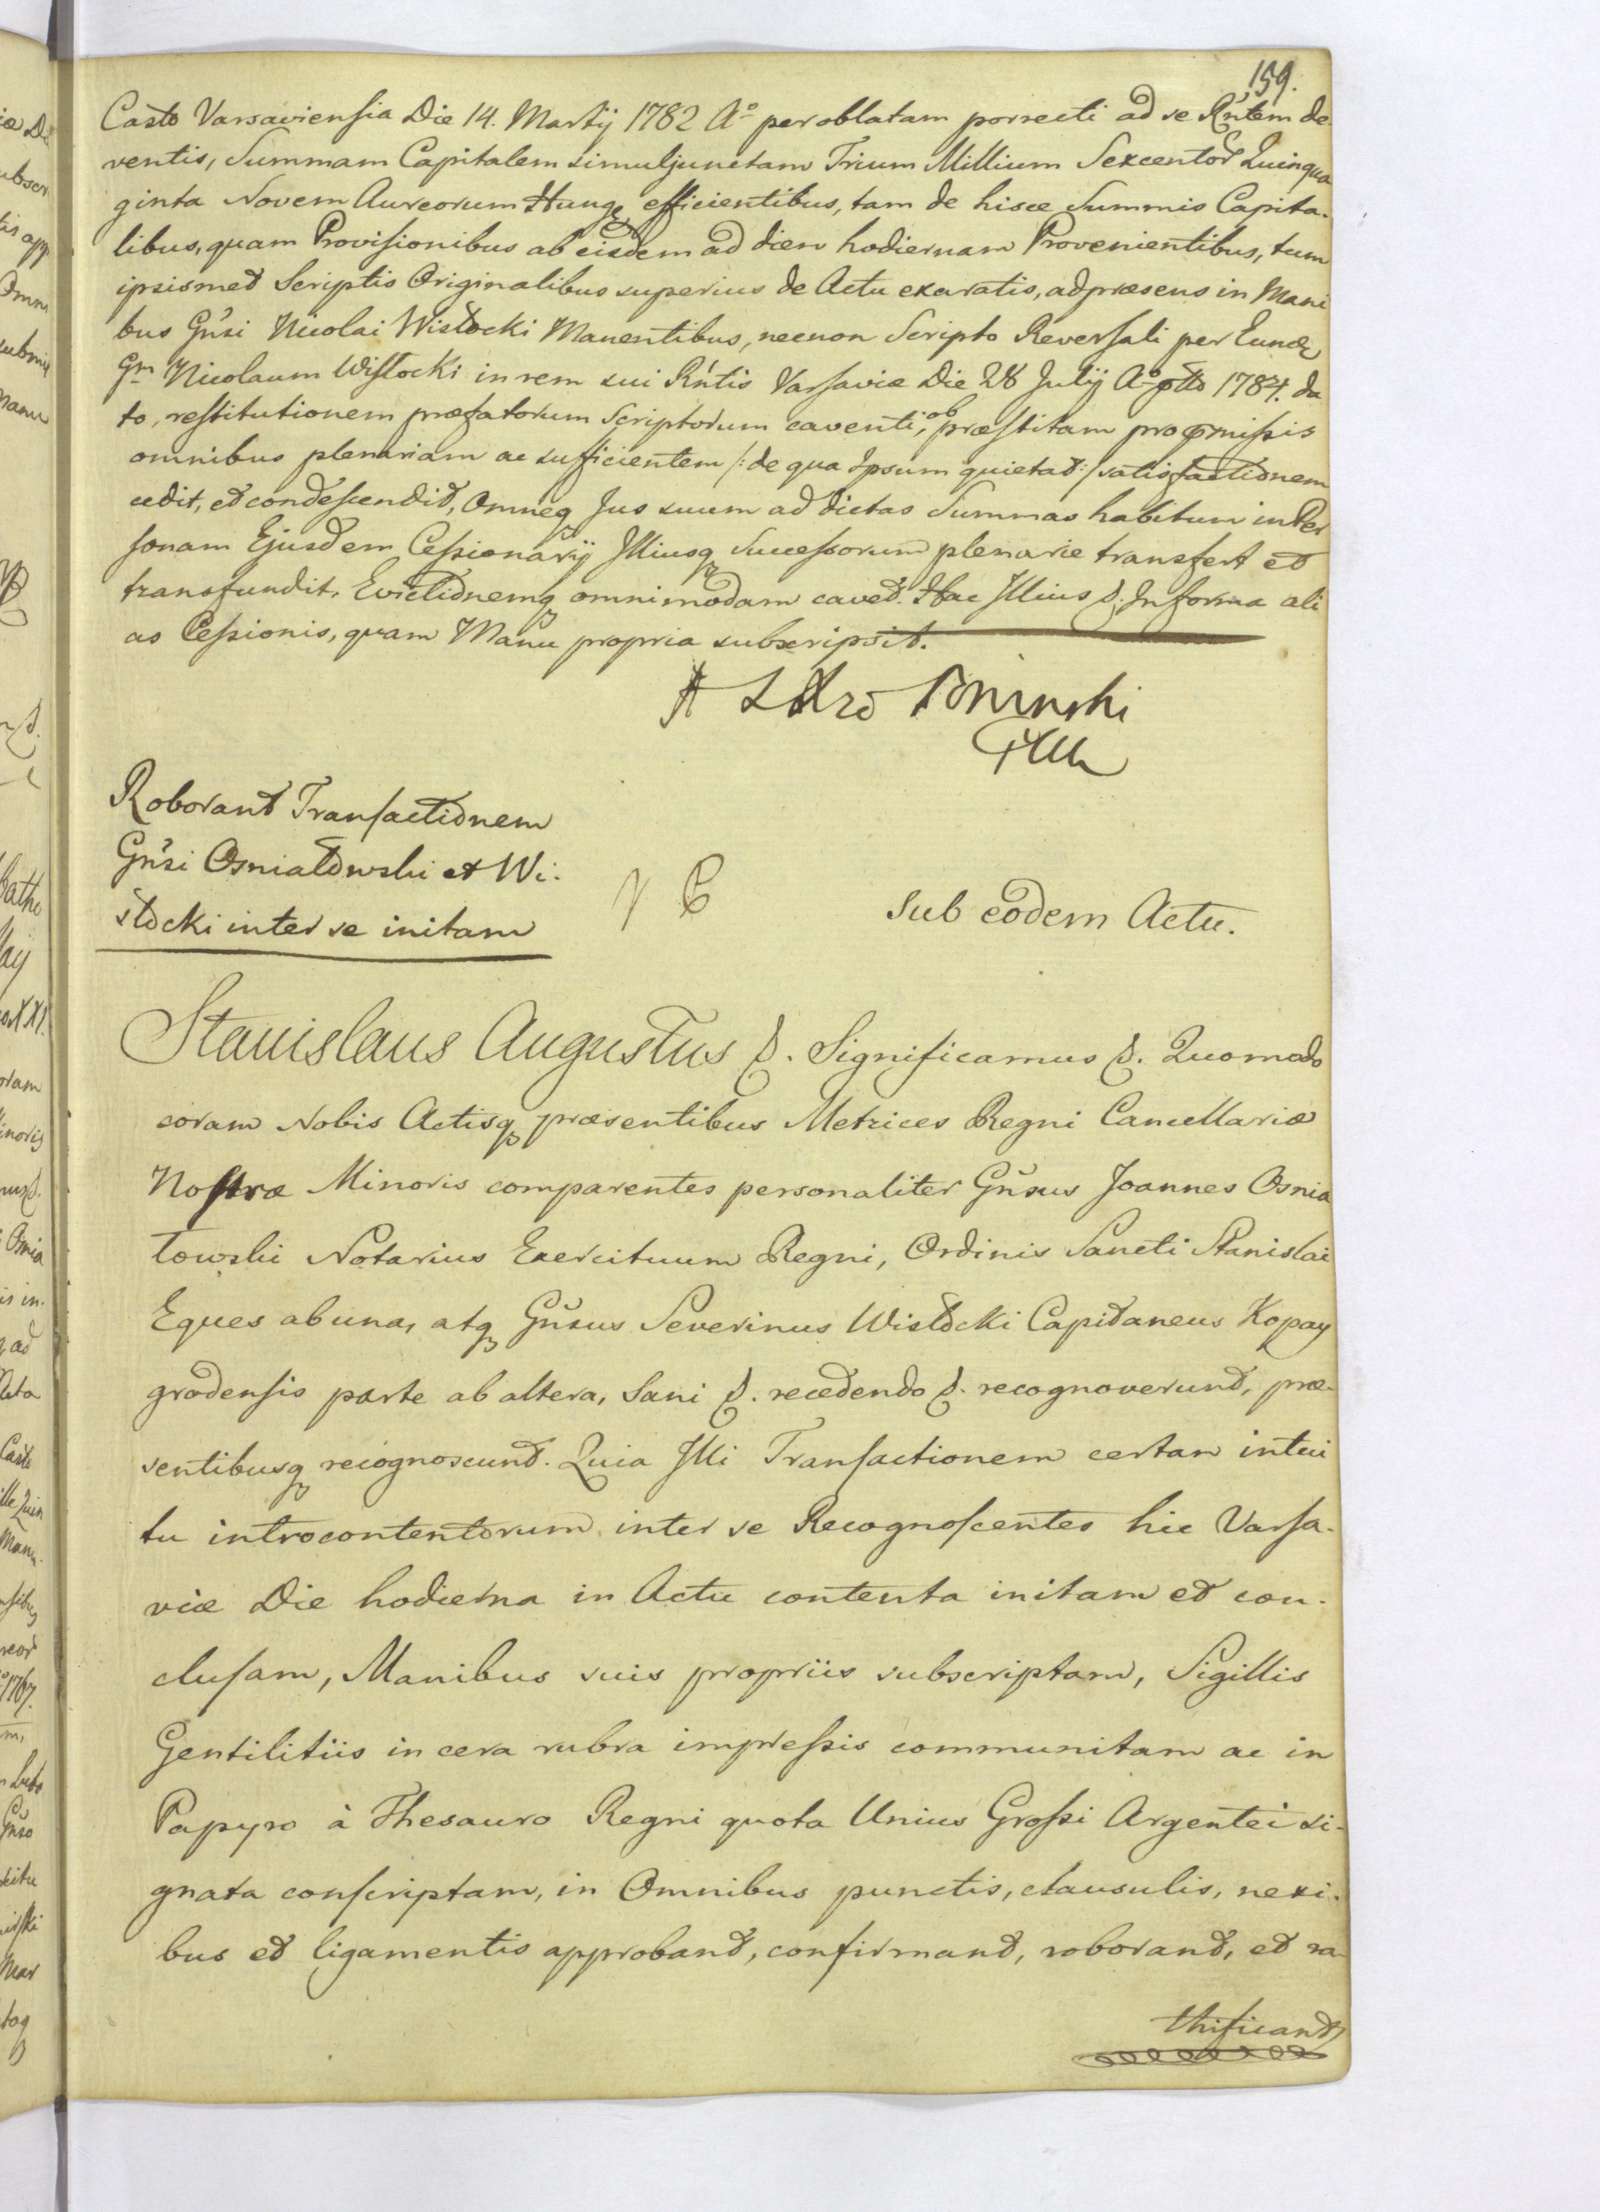 159.
Casto Varsaviensia Die 14. Martij 1782 Aº per oblatam porrecti ad se Rńtem de
ventis, Summam Capitalem simuljunctam Trium Millium Sexcentor Quinqua
ginta Novem Aureorum Hungq efficientibus, tam de hisce Summis Capita-
libus, quam Provisionibus ab eisdem ad diem hodiernam Provenientibus, tum
ipsismet Scriptis Originalibus superius de Actu exaratis, adpræsens in Mani
bus Gńsi Nicolai Wisłocki Manentibus, necnon Scripto Reversali per Eundq
Gm Nicolaum Wisłocki in rem sui Rńtis Varsaviæ Die 28 Julij Aº 1784. da
to, restitutionem præfatorum Scriptorum caventi, ob præstitam pro præmissis
omnibus plenariam ac sufficientem /: de qua Ipsum quietat :/ satisfactionem
cedit, et condescendit, Omneq Jus suum ad dictas Summas habitum in Per
sonam Ejusdem Cessionarij Illiusq Successorum plenarie transfert et
transfundit, Evictionemq omnimodam cavet. Hac Illius &. In forma ali
as Cessionis, quam Manu propria subscripsit.
Poninski
Roborant Transactionem
Gńsi Osniałowski et Wi-
słocki inter se initam
Sub eodem Actu.
Stanislaus Augustus &. Significamus &. Quomodo
coram Nobis Actisq præsentibus Metrices Regni Cancellariæ
Nostræ Minoris comparentes personaliter Gńsus Joannes Osnia
łowski Notarius Exercituum Regni, Ordinis Sancti Stanislai
Eques ab una, atq Gńsus Severinus Wisłocki Capitaneus Kopay
grodensis parte ab altera, Sani &. recedendo &. recognoverunt, præ-
sentibusq recognoscunt. Quia Illi Transactionem certam intui
tu introcontentorum inter se Recognoscentes hic Varsa-
viæ Die hodierna in Actu contenta initam et con-
clusam, Manibus suis propriis subscriptam, Sigillis
Gentilitiis in cera rubra impressis communitam ac in
Papyro à Thesauro Regni quota Unius Grossi Argentei si-
gnata conscriptam, in Omnibus punctis, clausulis, nexi-
bus et ligamentis approbant, confirmant, roborant, et ra-
thificant